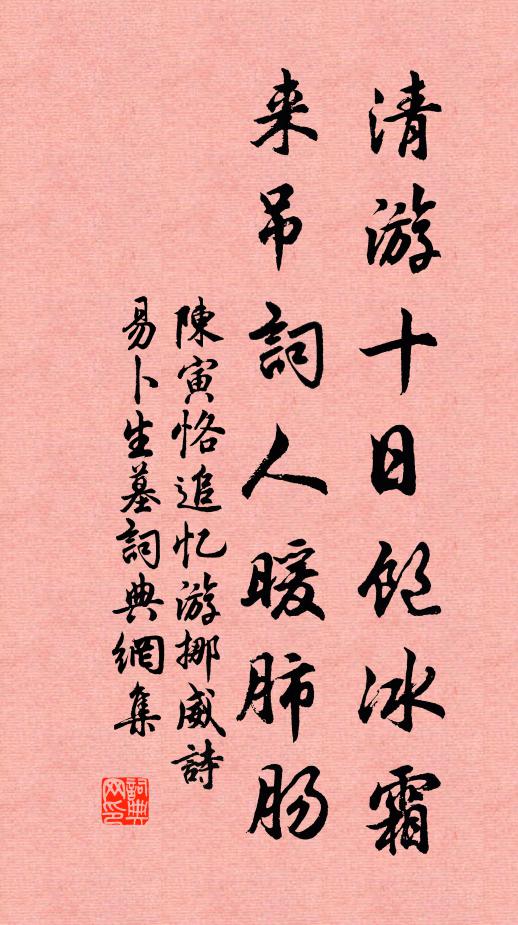 清游十日饱冰霜
来吊詞人暖肺肠
陳寅恪追忆游挪威詩
易卜生墓詞典網集
詞典网印